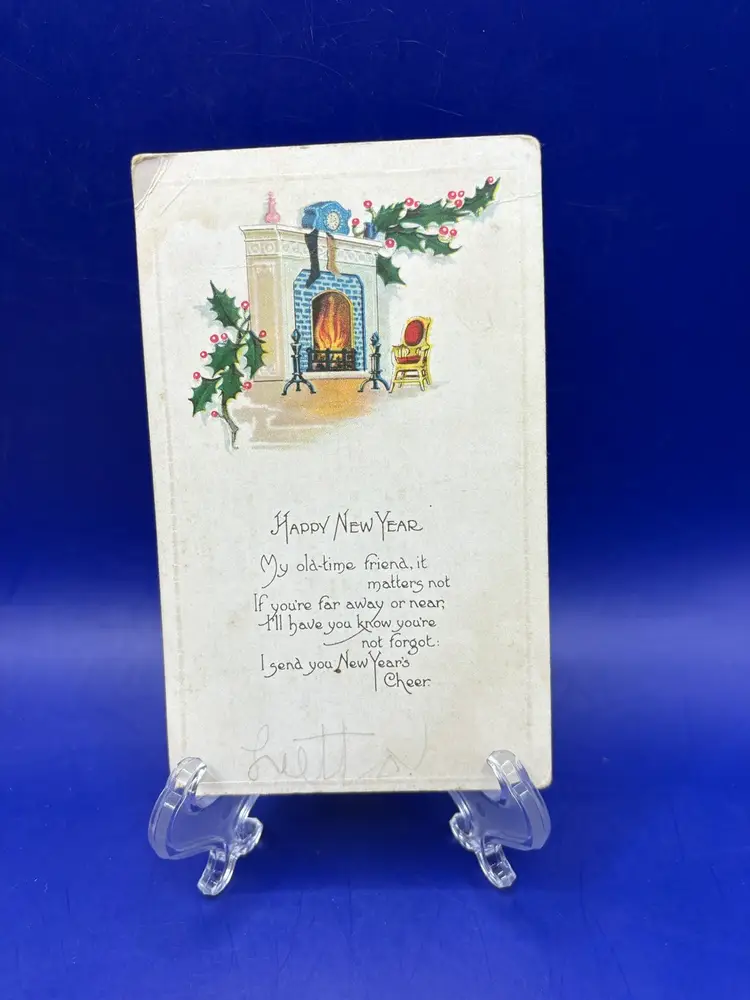 Happy New Year
My old-time friend, it
matters not
If you're far away or near,
I'll have you know you're
not forgot:
I send you New Year's
Cheer.